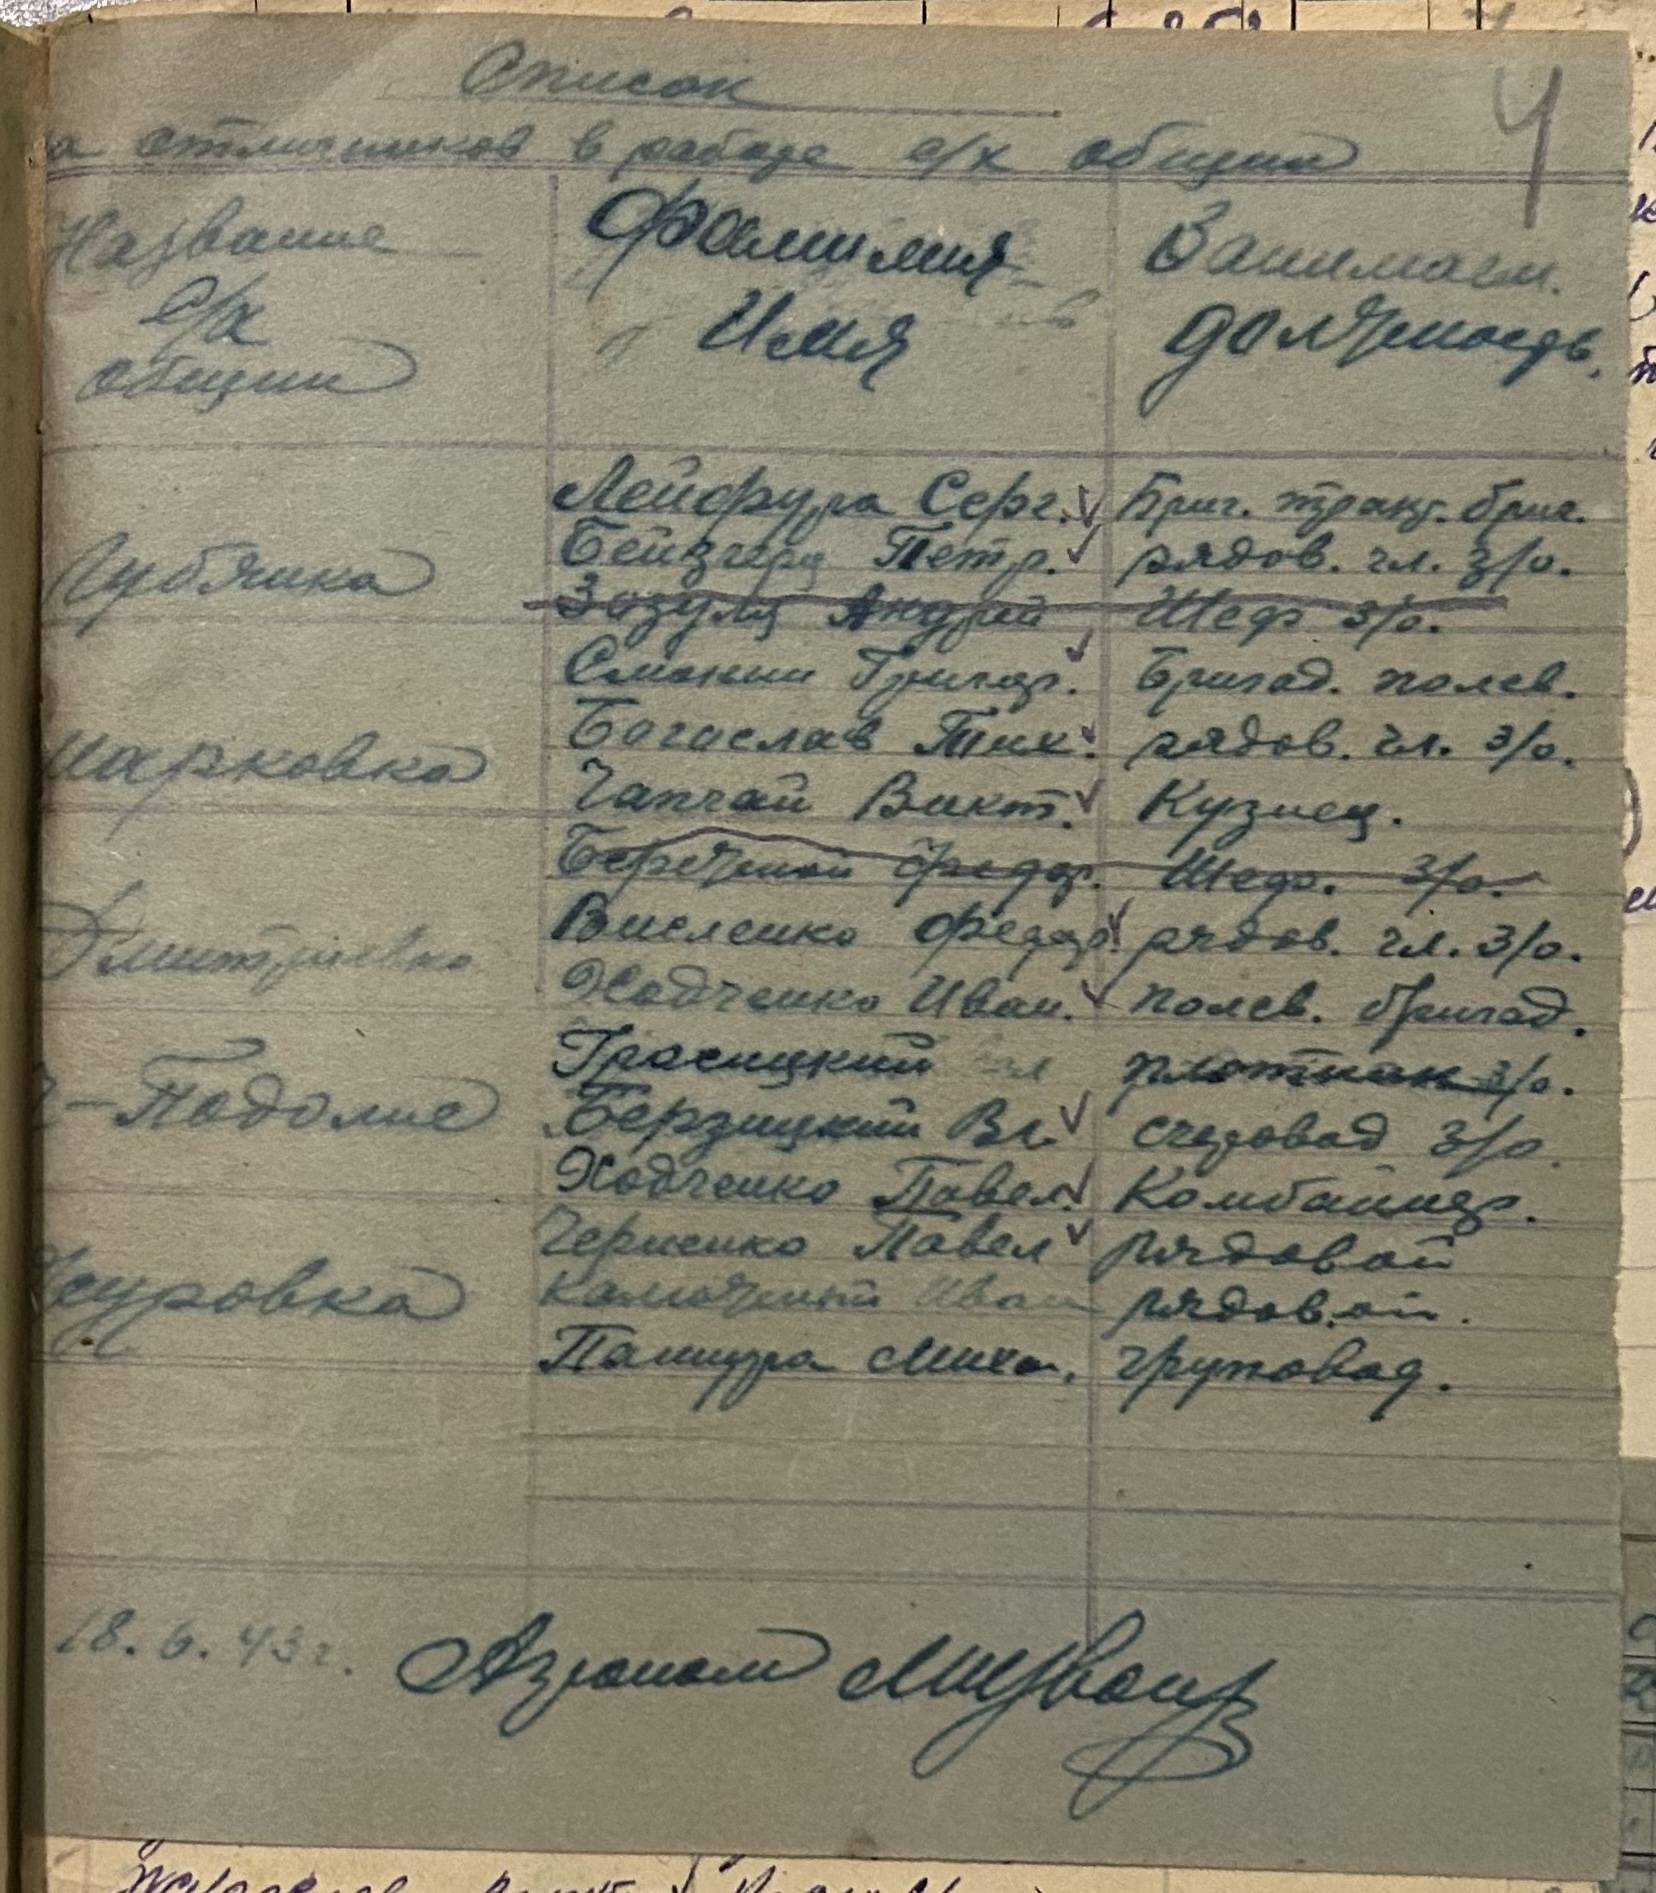 4
Список
на отличников в работе с/х общин
Название с/х общин
Фамилия Имя
Занимаем. должность.
Лейфура Серг. Бриг. тракт. бриг.
Губянка Петр. рядов. чл. з/о.
Зозуля Андрей Шеф з/о.
Григор. Бригад. полев.
Марковка Богислав Тих. рядов. чл. з/о.
Чапчай Викт. Кузнец.
Бережной Федор. Шеф. з/о.
Дмитриевка Висленко Федор. рядов. чл. з/о.
Ходченко Иван. полев. бригад.
плотник з/о.
-Подолие Берзицкий Вл. счетовод з/о.
Ходченко Павел. Комбайнер.
Черненко Павел рядовой
Иван рядовой.
Паншура Миха. груповод.
18.6.43г. Агроном